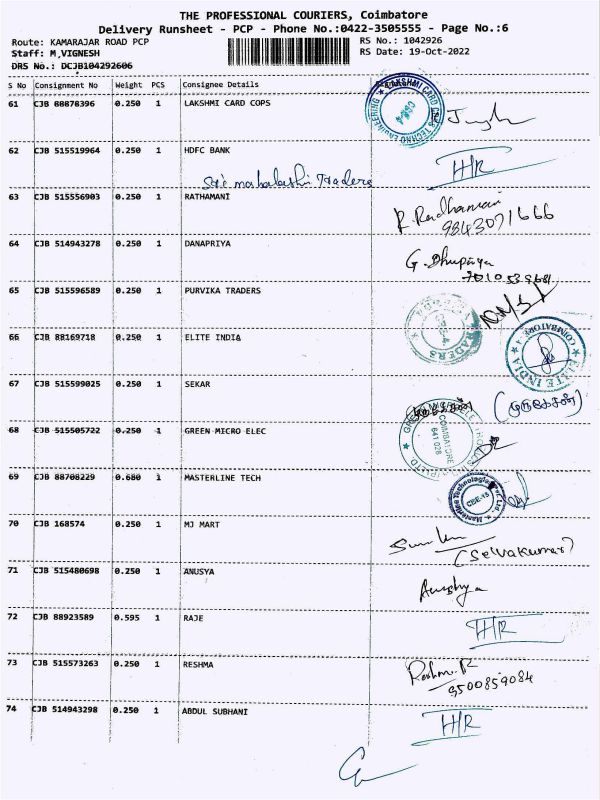 THE PROFESSIONAL COURIERS, Coimbatore
Delivery Runsheet - PCP - Phone No.:0422-3505555 - Page No.:6
Route: KAMARAJAR ROAD PCP
RS No.: 1042926
Staff: M,VIGNESH
RS Date: 19-Oct-2022
DRS No.: DCJB104292606
S No Consignment No Weight PCS Consignee Details
61 CJB 88878396 0.250 1 LAKSHMI CARD COPS
62 CJB 515519964 0.250 1 HDFC BANK
THR
Sri mahalashi Traders
63 CJB 515556903 0.250 1 RATHAMANI
R. Radhamani
9843071666
64 CJB 514943278 0.250 1 DANAPRIYA
65 CJB 515596589 0.250 1 PURVIKA TRADERS
66 CJB 88169718 0.250 1 ELITE INDIA
COIMBATORE
ELITE INDIA
67 CJB 515599025 0.250 1 SEKAR
(முருகேசன்)
68 CJB 515505722 0.250 1 GREEN MICRO ELEC
COIMBATORE
641 028
69 CJB 88708229 0.680 1 MASTERLINE TECH
Masterline Technologies Pvt. Ltd.
CBE-15
70 CJB 168574 0.250 1 MJ MART
(Selvakumar)
71 CJB 515480698 0.250 1 ANUSYA
72 CJB 88923589 0.595 1 RAJE
THR
73 CJB 515573263 0.250 1 RESHMA
Reshma.R
9500859084
74 CJB 514943298 0.250 1 ABDUL SUBHANI
THR